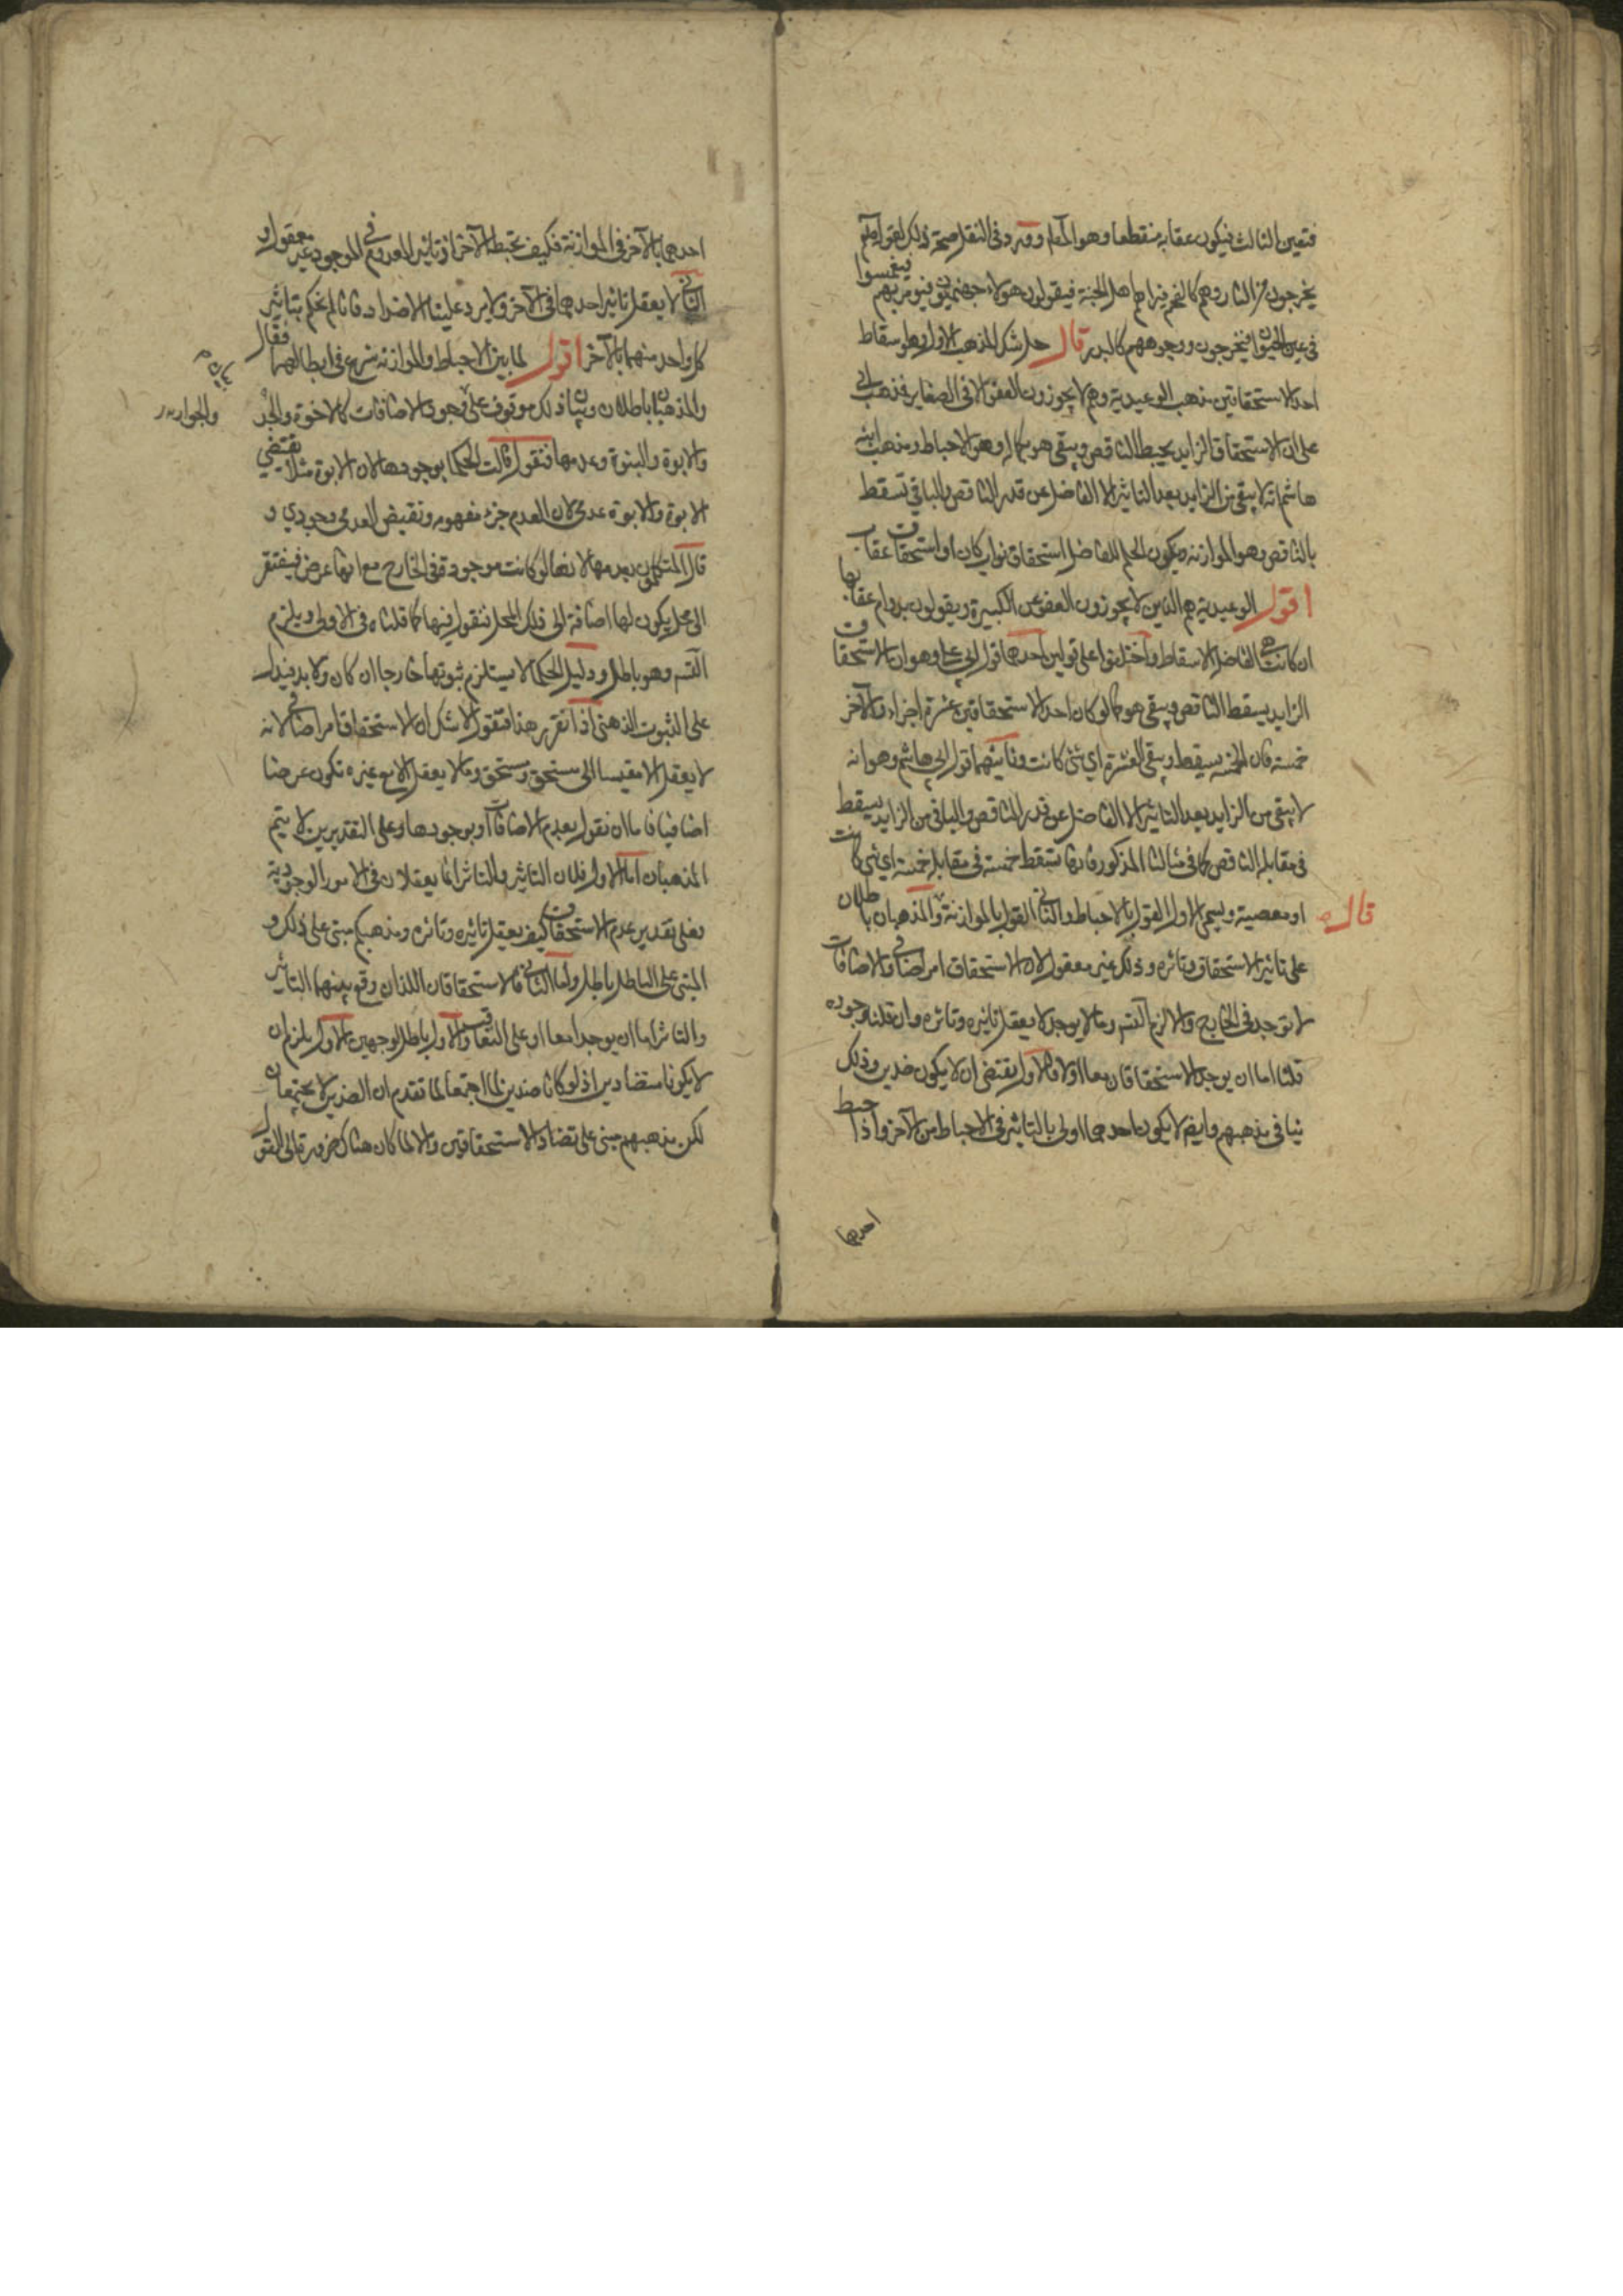 فتعين الثالث فيكون عقابه منقطعا وهو المعلم وقد ورد فى النقل صحة ذلك لقوله عم
يخرجون من النار وهم كالفحم فيراهم اهل الجنة فيقولون هولاء جهنميون فيؤمر بهم فيغمسوا
فى عين الحيوان فيخرجون ووجوههم كالبدر قال حل شك المذهب الاول وهو سقاط
احد الاستحقاقين مذهب الوعيدية وهم لا يجوزون العفو الا فى الصغاير فذهب ابى
على ان الاستحقاق الزايد يحبط الناقص ويبقى هو بكماله وهو الاحباط ومذهب ابنه
هاشم انه لا يبقى من الزايد بعد التاثير الا الفاضل عن قدر الناقص والباقي تسقط
بالناقص وهو الموازنه ويكون الحكم للفاضل استحقاق ثواب كان او استحقاق عقاب
اقول الوعيدية هم الذين لا يجوزون العفو عن الكبيرة ويقولون بدوام عقابها
ان كانت هى الفاضل الاسقاط واختلفوا على قولين احدهما قول ابى على وهو ان الاستحقاق
الزايد يسقط الناقص ويبقى هو كما لو كان احد الاستحقاقين عشرة اجزاء والآخر
خمسة فان الخمسه يسقط ويبقى العشرة اى شئ كانت وثانيهما قول ابى هاشم وهو انه
لا يبقى من الزايد بعد التاثير الا الفاضل عن قدر الناقص والباقى من الزايد يسقط
فى مقابلة الناقص كما فى مثالنا المذكور فانها تسقط خمسة فى مقابلة خمسة اى شئ كانت
قال او معصية ويسمى الاول القول بالاحباط والثانى القول بالموازنة والمذهبان باطلان
على تاثير الاستحقاق وتاثره وذلك غير معقول لان الاستحقاق امر اضافى والاضافات
لا توجد فى الخارج والا لزم التسم وما لا يوجد لا يعقل تاثيره وتاثره وان قلنا بوجوده
قلنا اما ان يوجد الاستحقاقان معا اولا والاول يقتضى ان لا يكون ضدين وذلك
ينافى مذهبهم وايضا لا يكون احدهما اولى بالتاثير فى الاحباط من الآخر واذا حبط
احدهما
احدهما بالآخر فى الموازنة فكيف يحبط الآخر اذ تاثير المعدوم فى الموجود غير معقول و
الثانى لا يعقل تاثير احدهما فى الآخر ولا يرد علينا الاضداد فانا لم نحكم بتاثير
كل واحد منهما بالآخر اقول لما بين الاحباط والموازنه شرع فى ابطالهما فقال
والمذهبان باطلان وبيان ذلك موقوف على وجود الاضافات كالاخوة والجد
والجوار
والابوة والبنوة وعدمها فنقول قالت الحكما بوجودها لان الابوة مثلا نقيض
الابوة والابوة عدمى لان العدم جزء مفهومه ونقيض العدمى وجودي و
قال المتكلمون بعدمها لانها لو كانت موجودة فى الخارج مع انها عرض فيفتقر
الى محل يكون لها اضافة الى ذلك المحل فنقول فيها كما قلناه فى الاولى ويلزم
التسم وهو باطل ودليل الحكما لا يستلزم ثبوتها خارجا ان كان ولا بد فيدل
على الثبوت الذهنى اذا تقرر هذا فنقول لا شك ان الاستحقاق امر اضافى لانه
لا يعقل الا مقيسا الى مستحق ومستحق وما لا يعقل الا مع غيره تكون عرضا
اضافيا فاما ان نقول بعدم الاضافات او بوجودها وعلى التقديرين لا يتم
المذهبان اما الاول فلان التاثير والتاثر انما يعقلان فى الامور الوجودية
فعلى تقدير عدم الاستحقاق كيف يعقل تاثيره وتاثره ومذهبكم مبنى على ذلك و
المبنى على الباطل باطل واما الثانى فالاستحقاقان اللذان وقع بينهما التاثير
والتاثر اما ان يوجدا معا او على التعاقب والاول باطل لوجهين الاول يلزم ان
لا يكونا متضادين اذ لو كانا ضدين لما اجتمعا لما تقدم ان الضدين لا يجتمعان
لكن مذهبهم مبنى على تضاد الاستحقاقين والا لما كان هناك ضرورة الى القول